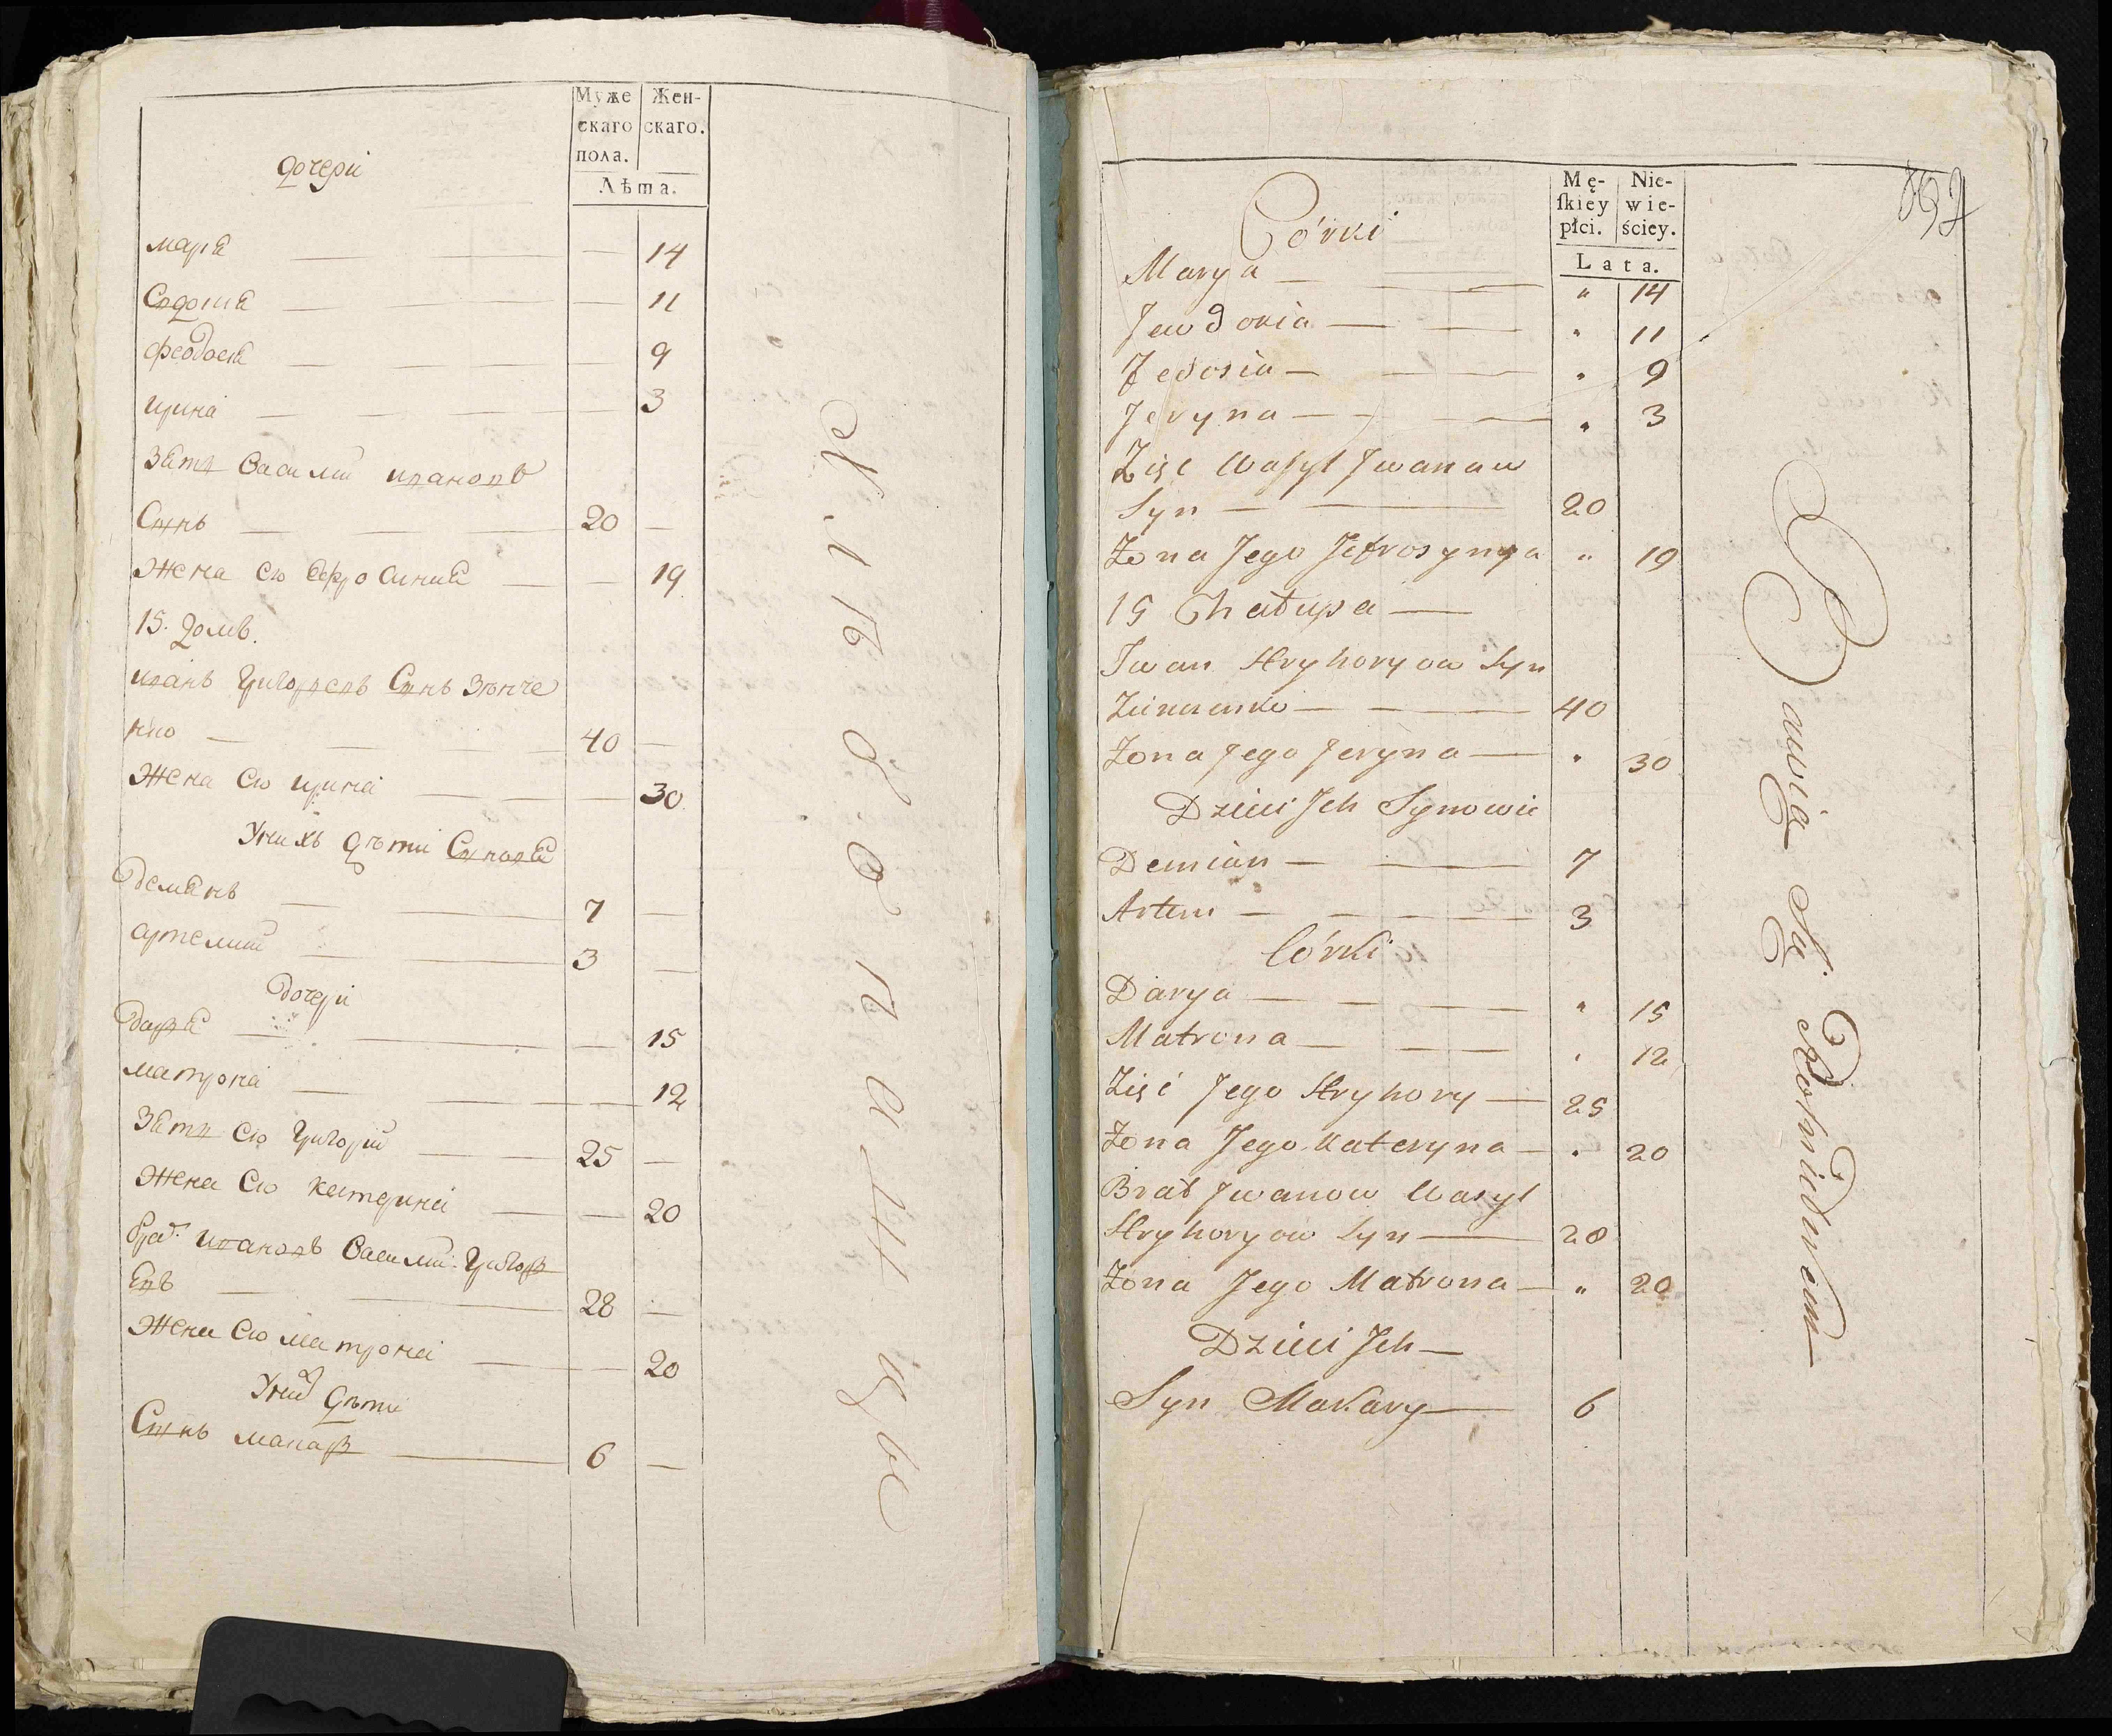 Муже
скаго
пола.
Жен-
скаго.
Лѣта.
дочери
мариа — — 14
Євдокиа — — 11
феодосиа — — 9
ирина — — 3
Зять Василий ивановъ
Сынъ — 20 —
Жена єго Єфросиния — — 19
15. Домъ.
иванъ григориевъ Сынъ Зѣнче
нко — 40 —
Жена єго ирина — — 30
Унихъ дѣти Синовя
демянъ — 7 —
артемий — 3 —
дочери
даря — — 15
матрона — — 12
Зять єго григорий — 25 —
Жена єго катерина — — 20
брат ивановъ Василий григор
євъ — 28 —
Жена єго матрона — — 20
Уних дѣти
Сынъ макар — 6 —
Mę-
ſkiey
płci.
Nie-
wie-
ściey.
Lata.
Córki
Marya — " 14
Jewdokia — " 11
Fedosia — " 9
Jeryna — " 3
Zięć Wasyl Jwanaw
Syn — 20
Żona Jego Jefrosynya " 19
15 Chałupa —
Jwan Hryhoryow Syn
40
Żona Jego Jeryna — " 30
Dzieci Jch Synowie
Demian — 7
Artem — 3
Córki
Darya — " 15
Matrona — " 12
Zięć Jego Hryhory — 25
Żona Jego Kateryna — " 20
Brat Jwanow Wasyl
Hryhoryow Syn — 28
Żona Jego Matrona — " 20
Dzieci Jch —
Syn Makary — 6